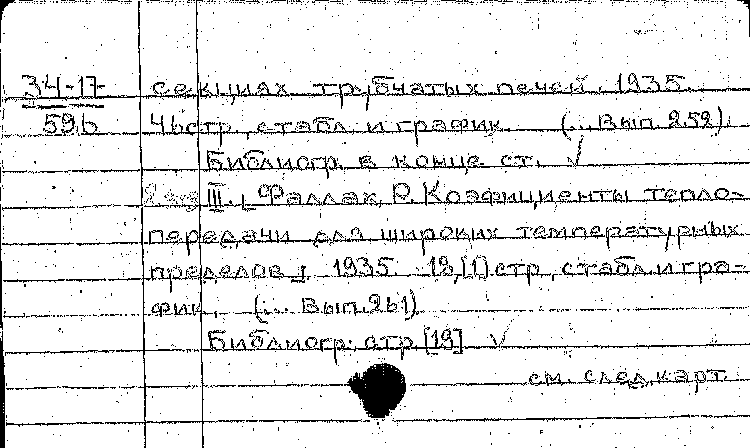 34-17 секциях трубчатых печей. 1935.
59б 46стр, с табл. и график. (... Вып. 252).
Библиогр. в конце ст. √
III. Фаллах, Р. Коэфициенты тепло-
передачи для широких температурных
пределов. 1935. 19,[1] стр, с табл. и гра-
фик. (... Вып. 261)
Библиогр. стр. [19] √
см. след. карт.